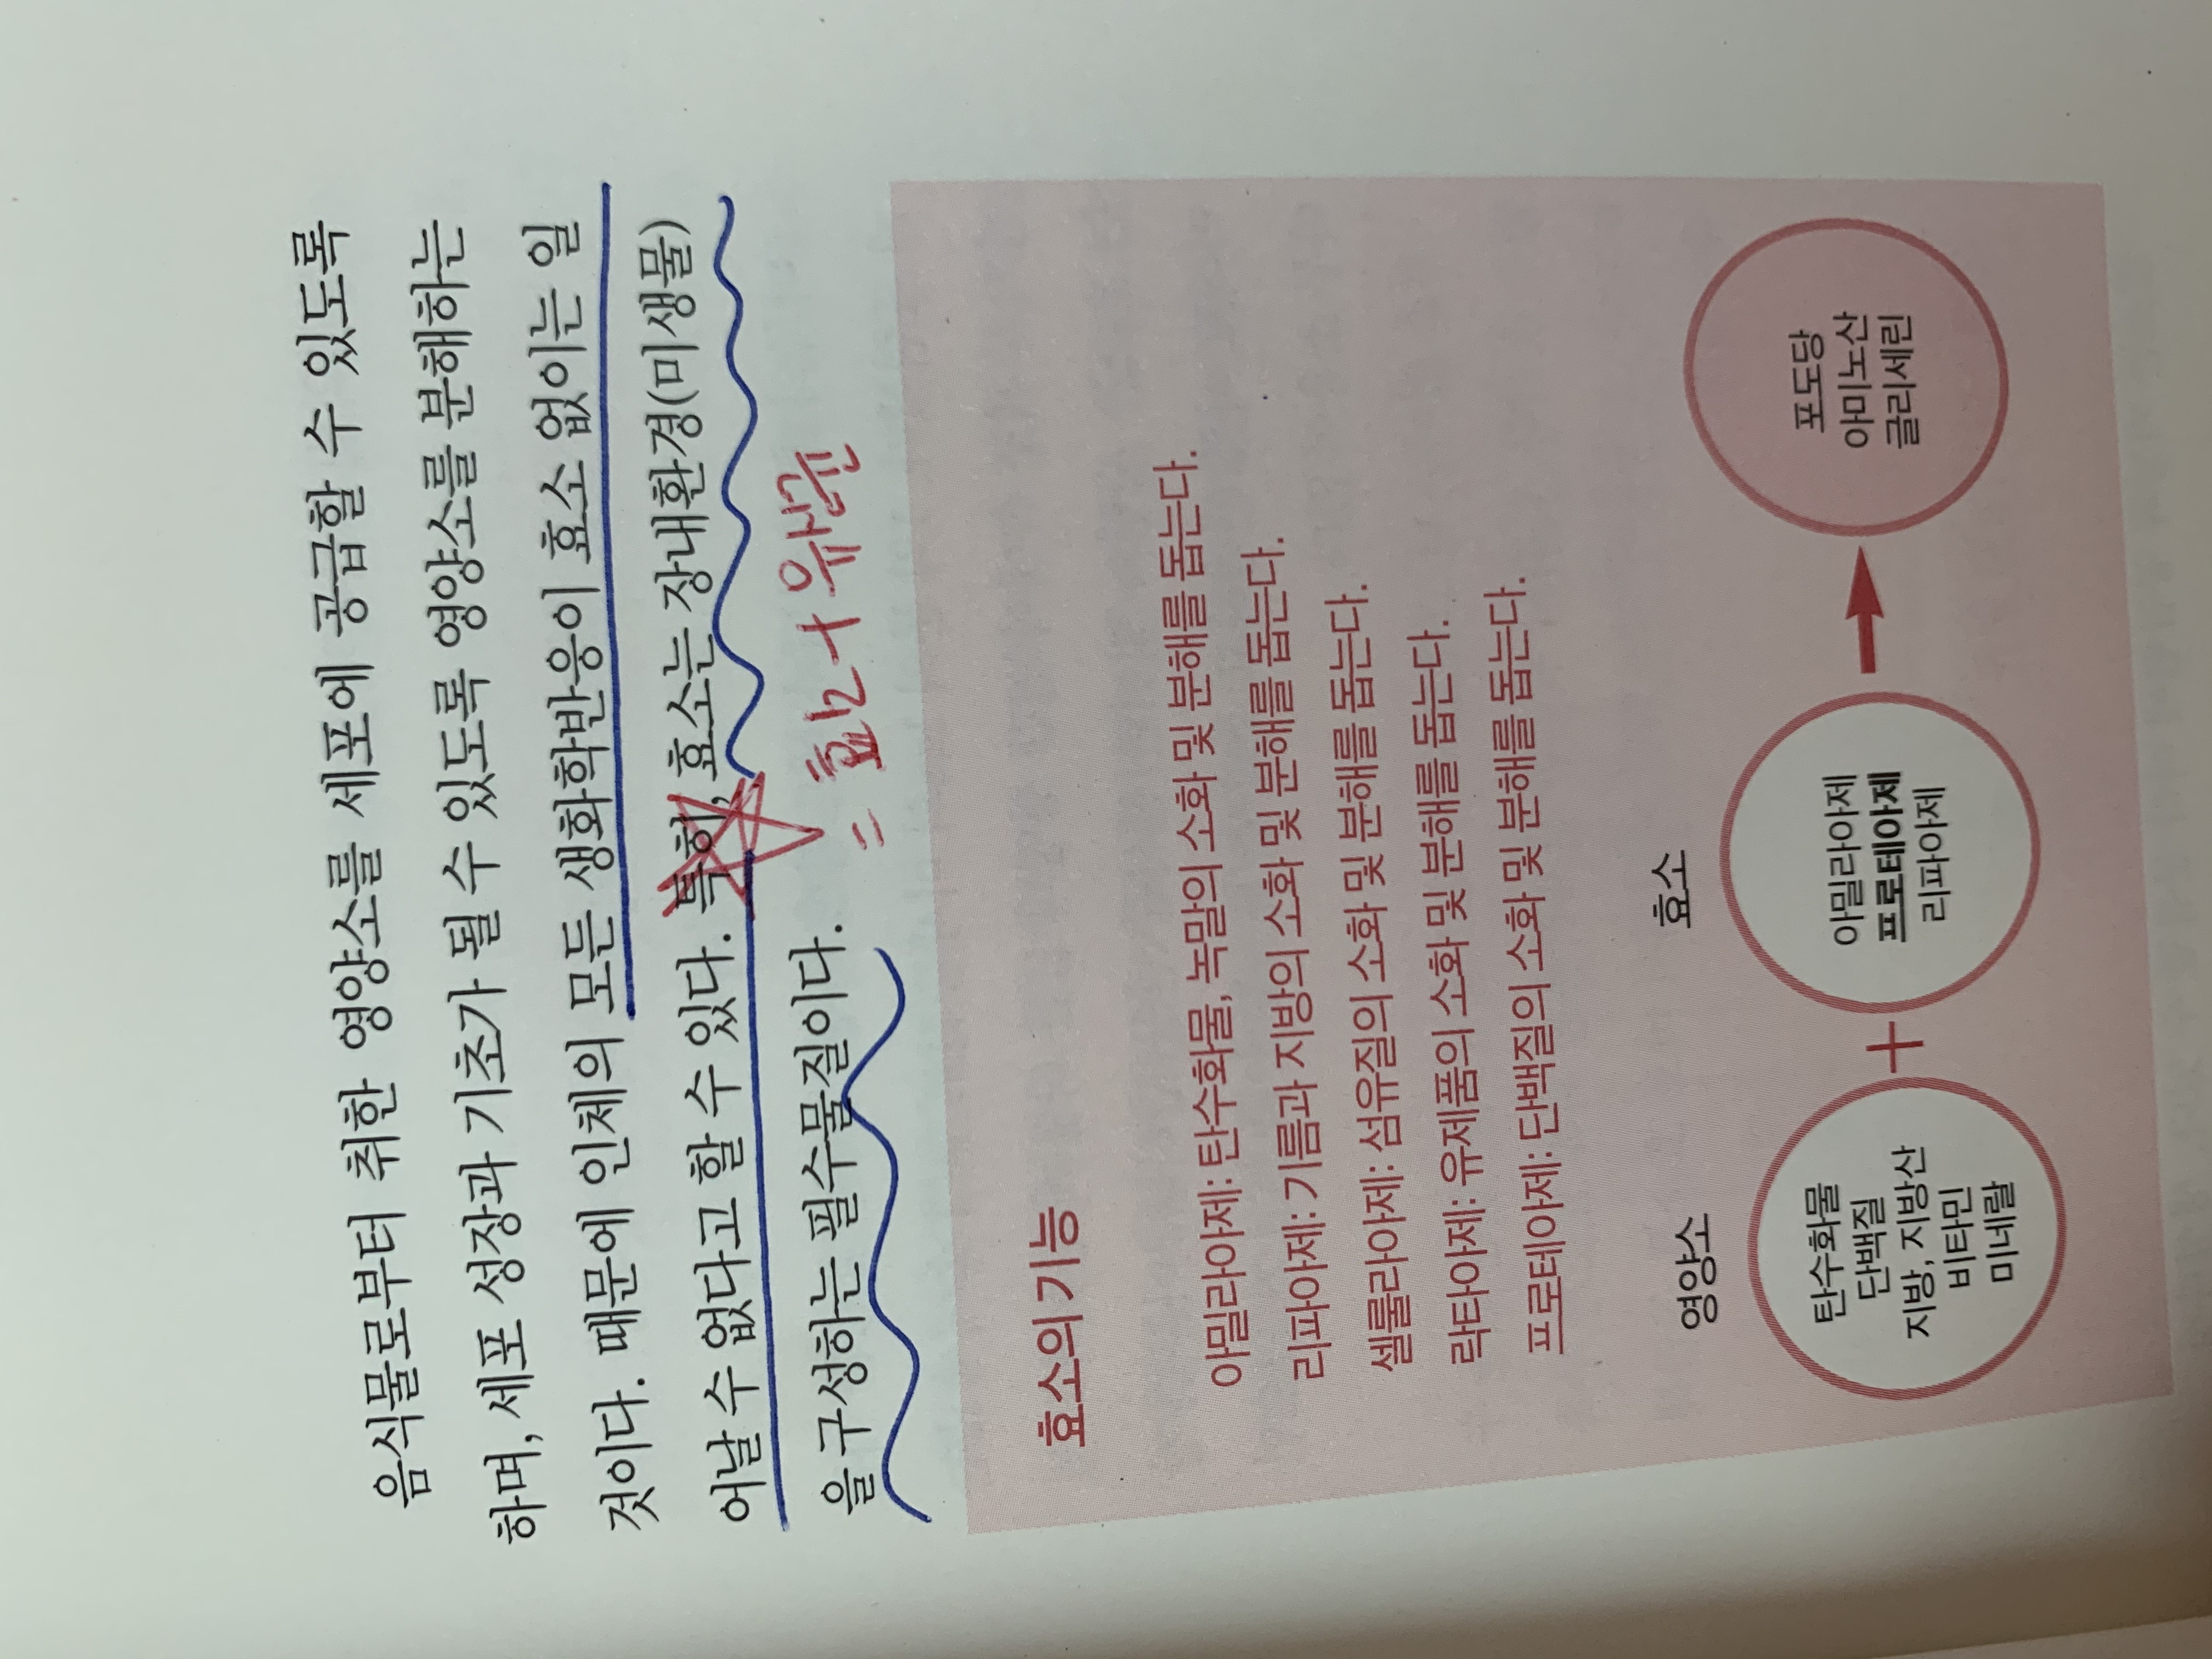 음식물로부터 취한 영양소를 세포에 공급할 수 있도록
하며, 세포 성장과 기초가 될 수 있도록 영양소를 분해하는
것이다. 때문에 인체의 모든 생화학반응이 효소 없이는 일
어날 수 없다고 할 수 있다. 특히, 효소는 장내환경(미생물)
을 구성하는 필수물질이다.
= 효소 + 유산균
효소의 기능
아밀라아제: 탄수화물, 녹말의 소화 및 분해를 돕는다.
리파아제: 기름과 지방의 소화 및 분해를 돕는다.
셀룰라아제: 섬유질의 소화 및 분해를 돕는다.
락타아제: 유제품의 소화 및 분해를 돕는다.
프로테아제: 단백질의 소화 및 분해를 돕는다.
영양소
탄수화물
단백질
지방, 지방산
비타민
미네랄
+
효소
아밀라아제
프로테아제
리파아제
포도당
아미노산
글리세린